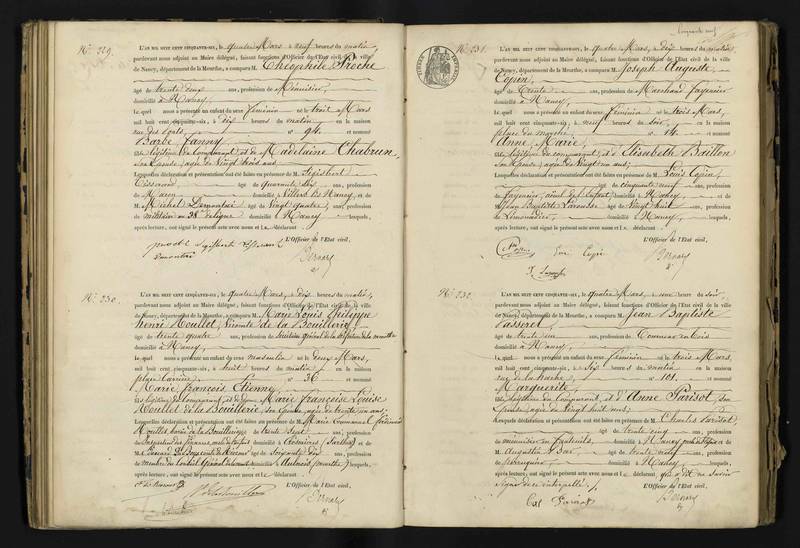 N° 229.
L'AN MIL HUIT CENT CINQUANTE-SIX, le quatre Mars, à neuf heures du matin,
pardevant nous adjoint au Maire délégué, faisant fonctions d'Officier de l'Etat civil de la ville
de Nancy, département de la Meurthe, a comparu M. Théophile
âgé de trente deux ans, profession de Menuisier,
domicilié à Nancy,
Lequel nous a présenté un enfant du sexe féminin né le trois Mars
mil huit cent cinquante-six, à dix heures du matin en la maison
rue des n° 94. et nommé
Barbe Fanny
fille légitime du comparant et de Madelaine Chabrun,
son épouse, âgée de vingt trois ans
Lesquelles déclaration et présentation ont été faites en présence de M. Sigisbert
âgé de quarante six ans, profession
de domicilié à Villers lès Nancy, et de
M. Michel âgé de vingt quatre ans, profession
de domicilié à Nancy lesquels,
après lecture, ont signé le présent acte avec nous et le déclarant.
L'Officier de l'Etat civil,
Bernard
N° 230.
L'AN MIL HUIT CENT CINQUANTE-SIX, le quatre Mars, à dix heures du matin,
pardevant nous adjoint au Maire délégué, faisant fonctions d'Officier de l'Etat civil de la ville
de Nancy, département de la Meurthe, a comparu M. Marie Louis Philippe
henri Roullet, Vicomte de la Bouillerie,
âgé de trente quatre ans, profession de
domicilié à Nancy,
Lequel nous a présenté un enfant du sexe masculin né le deux Mars,
mil huit cent cinquante-six, à huit heures du matin en la maison
place Carrière, n° 36 et nommé
Marie françois Etienne,
fils légitime du comparant et de Marie Françoise Louise
Roullet de la Bouillerie, son épouse, âgée de trente un ans;
Lesquelles déclaration et présentation ont été faites en présence de M.
Roullet, de la Bouillerie âgé de trente sept ans, profession
domicilié à (Sarthe) et
M. âgé de soixante dix ans, profession
de domicilié à (meurthe) lesquels,
après lecture, ont signé le présent acte avec nous et le déclarant.
L'Officier de l'Etat civil,
Bernard
N° 231.
L'AN MIL HUIT CENT CINQUANTE-SIX, le quatre Mars, à dix heures du matin,
pardevant nous adjoint au Maire délégué, faisant fonctions d'Officier de l'Etat civil de la ville
de Nancy, département de la Meurthe, a comparu M. Joseph Auguste
Copin,
âgé de trente ans, profession de Marchand fayencier
domicilié à Nancy,
Lequel nous a présenté un enfant du sexe féminin né le trois Mars,
mil huit cent cinquante-six, à neuf heures du soir, en la maison
place du marché, n° 14. et nommé
Anne Marie,
fille légitime du comparant, et d'Elisabeth Baillon
son épouse, âgée de vingt un ans;
Lesquelles déclaration et présentation ont été faites en présence de M. Louis Copin,
âgé de cinquante neuf ans, profession
de fayencier, aïeul de l'enfant domicilié à Nancy, et de
M. Jean Baptiste âgé de vingt huit ans, profession
de Limonadier, domicilié à Nancy, lesquels,
après lecture, ont signé le présent acte avec nous et le déclarant.
L'Officier de l'Etat civil,
Bernard
N° 232.
L'AN MIL HUIT CENT CINQUANTE-SIX, le quatre Mars, à heure du soir,
pardevant nous adjoint au Maire délégué, faisant fonctions d'Officier de l'Etat civil de la ville
de Nancy, département de la Meurthe, a comparu M. Jean Baptiste
Passerel,
âgé de trente un ans, profession de
domicilié à Nancy,
Lequel nous a présenté un enfant du sexe féminin né le trois Mars,
mil huit cent cinquante-six, à six heures du matin en la maison
rue de la hache n° 101. et nommé
Marguerite,
fille légitime du comparant, et d'Anne Parisot, son
épouse, âgée de vingt huit ans;
Lesquelles déclaration et présentation ont été faites en présence de M. Charles Parisot,
âgé de trente cinq ans, profession
de menuisier en fauteuils, domicilié à Nancy et
M. Augustin âgé de trente ans, profession
de domicilié à Nancy, lesquels,
après lecture, ont signé le présent acte avec nous et le déclarant a dit ne savoir
signer de ce interpellé.
L'Officier de l'Etat civil,
Parisot
Bernard